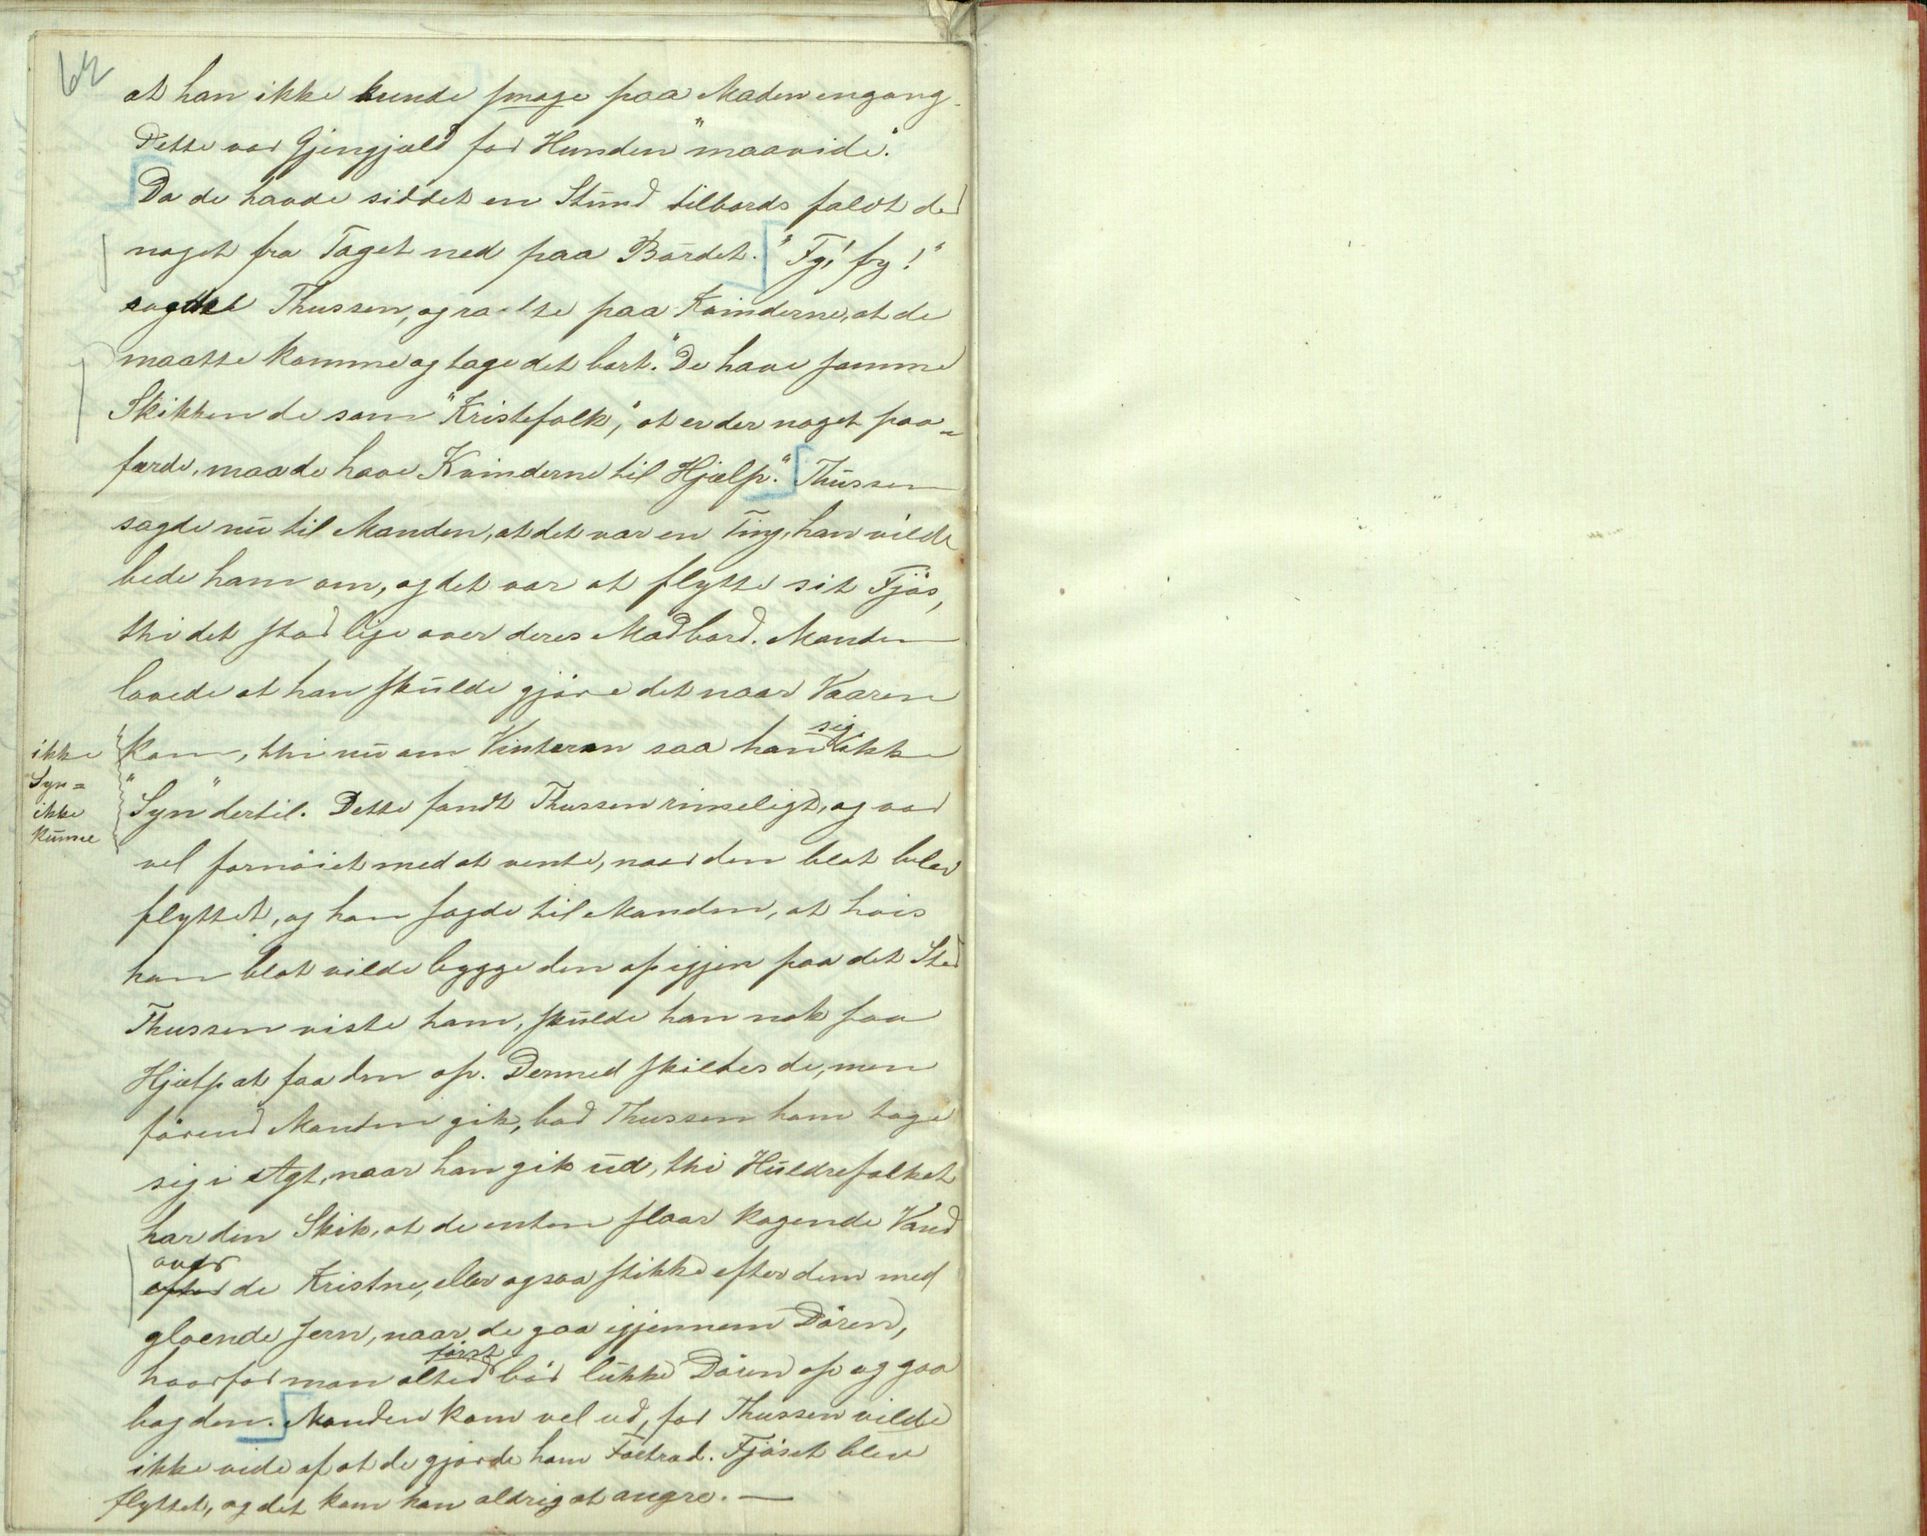 62
at han ikke kunde smage paa Maden engang.
Dette var Gjengjæld for Hunden "maavide".
Da de havde siddet en Stund tilbords faldt der
noget fra Taget ned paa Bordet. "Fy! fy!"
sagde Thussen, og raabte paa Kvinderne, at de
maatte komme og tage det bort. "De have samme
Skikken de som "Kristefolk", at er der noget paa-
færde, maa de have Kvinderne til Hjælp." Thussen
sagde nu til Manden, at det var en Ting, han vilde
bede ham om, og det var at flytte sit Fjøs,
thi det stod lige over deres Madbord. Manden
lovede at han skulde gjøre det naar Vaaren
kom, thi nu om Vinteren saa han sig ikke
"Syn" dertil. Dette fandt Thussen rimeligt, og var
ikke
Syn =
ikke
kunne
vel fornøiet med at vente, naar den blot blev
flyttet, og han sagde til Manden, at hvis
han blot vilde bygge den op igjen paa det Sted
Thussen viste ham, skulde han nok faa
Hjælp at faa den op. Dermed skiltes de, men
førend Manden gik, bad Thussen ham tage
sig i Agt, naar han gik ud, thi Huldrefolket
har den Skik, at de enten slaar kogende Vand
over
efter de Kristne, eller ogsaa stikke efter dem med
gloende Jern, naar de gaa igjennem Døren,
hvorfor man altid først bør lukke Døren op og gaa
bag den. Manden kom vel ud, for Thussen vilde
ikke vide af at de gjorde ham Fortræd. Fjøset blev
flyttet, og det kom han aldrig at angre. —